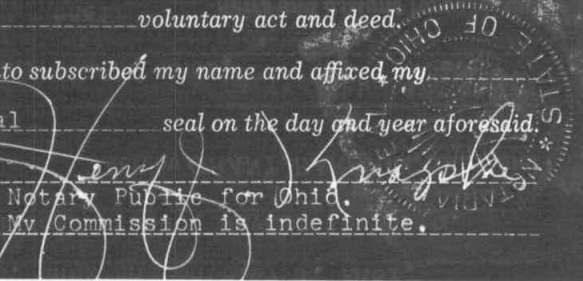 voluntary act and deed.
to subscribed my name and affixed my
al seal on the day and year aforesaid.
Notary Public for Ohio.
My Commission is indefinite.
STATE OF OHIO * NOTARIAL